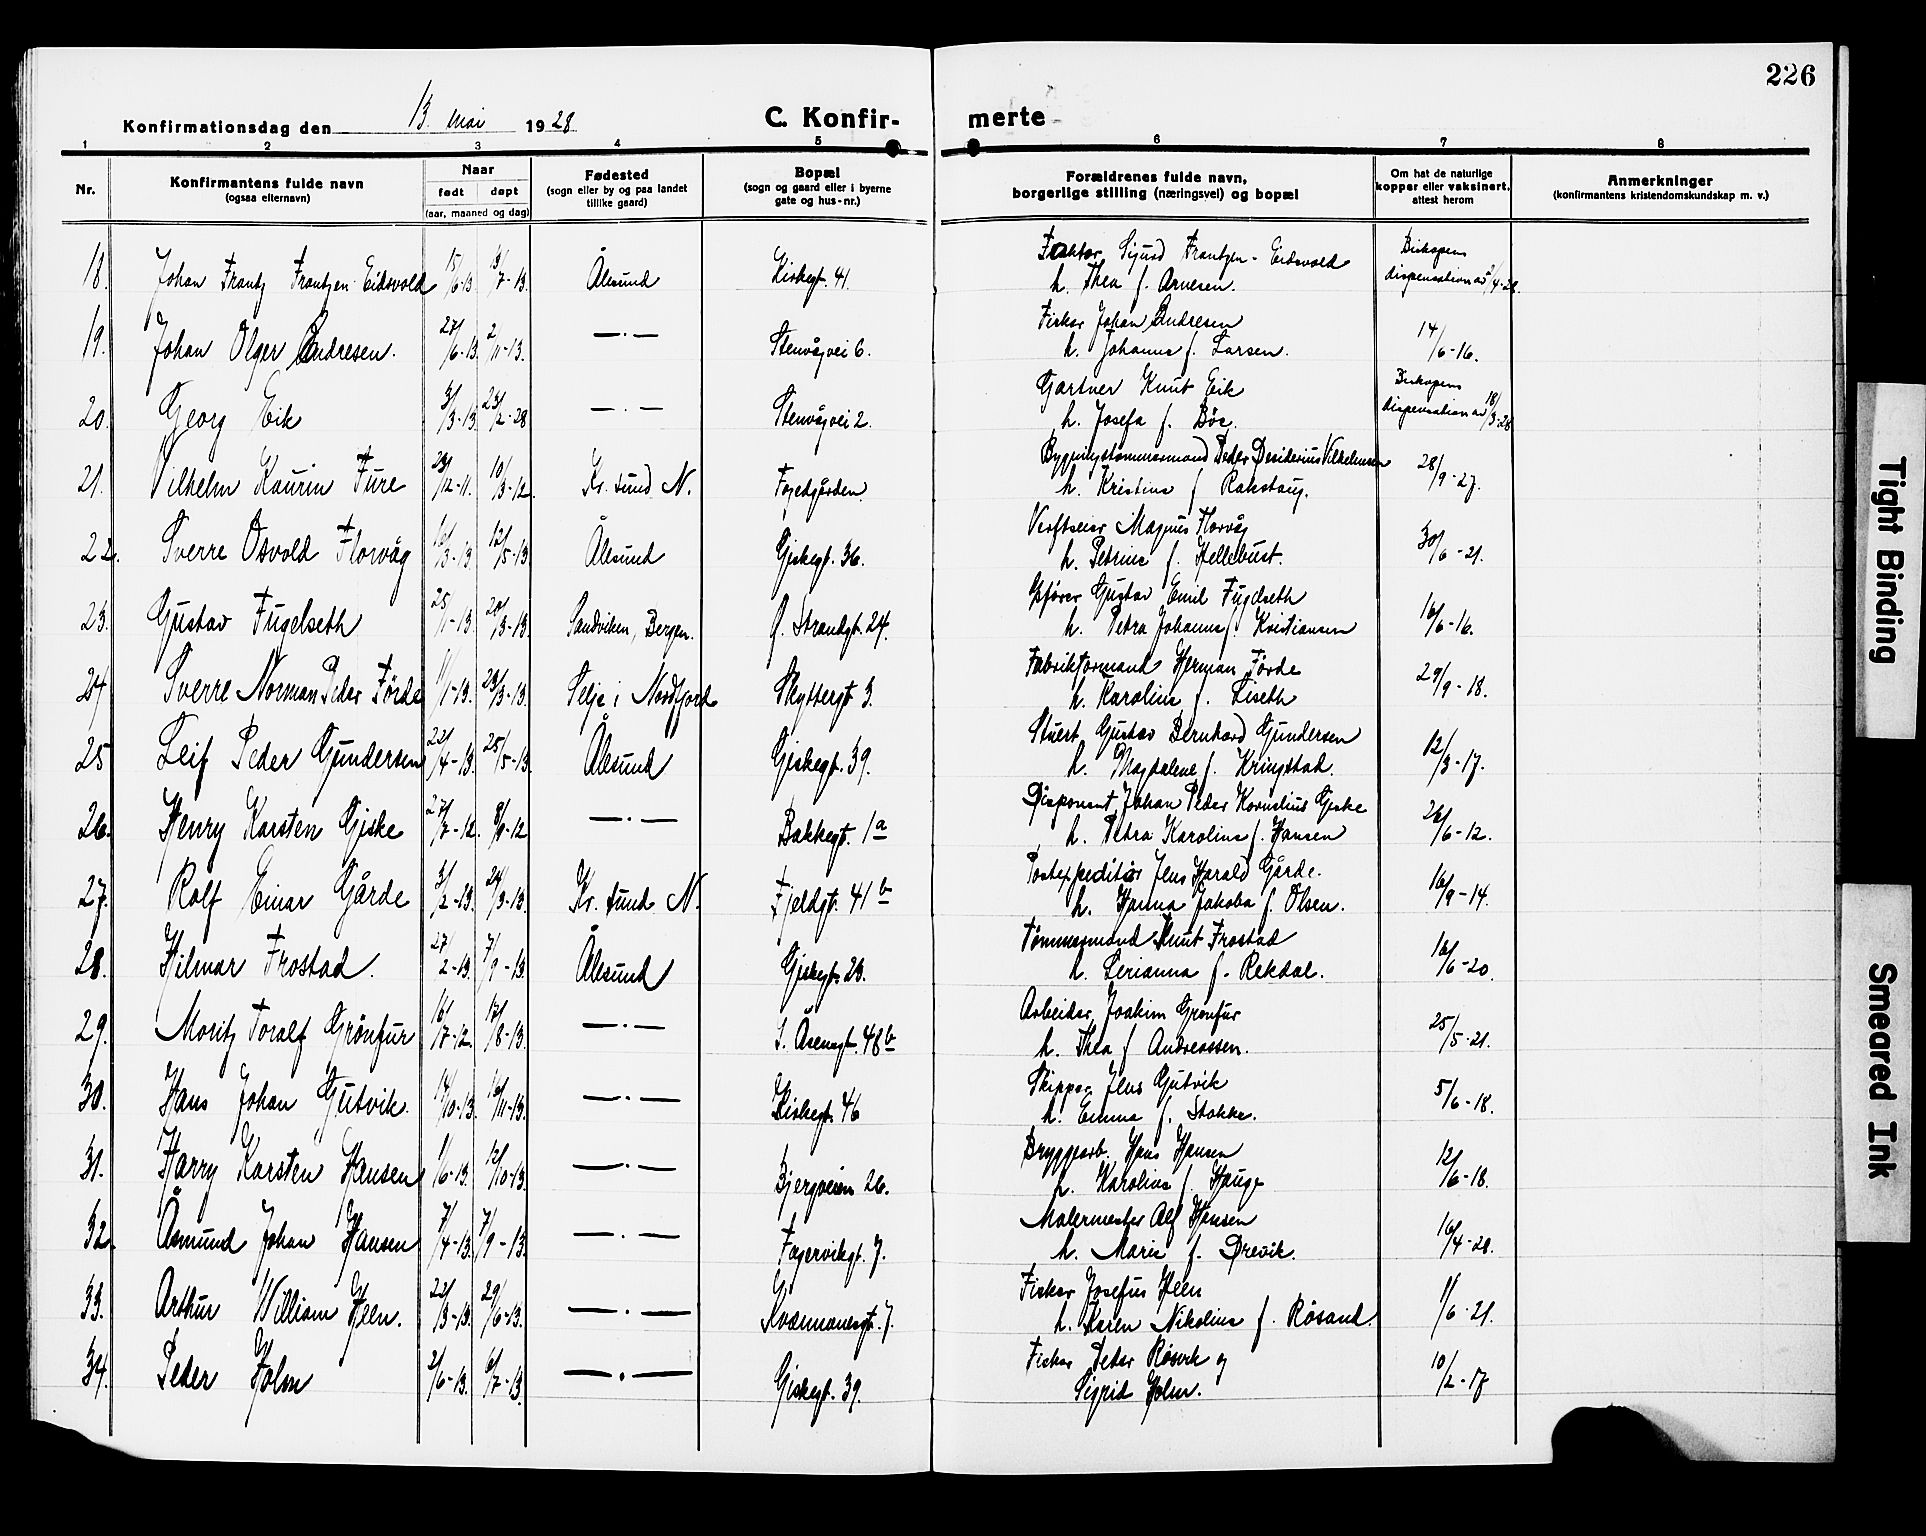 226
Konfirmationsdag den 13. mai 1928
C. Konfirmerte
1 2 3 4 5 6 7 8
Nr.
Konfirmantens fulde navn
(ogsaa efternavn)
Naar
født døpt
(aar, maaned og dag)
Fødested
(sogn eller by og paa landet
tillike gaard)
Bopæl
(sogn og gaard eller i byerne
gate og hus-nr.)
Forældrenes fulde navn,
borgerlige stilling (næringsvei) og bopæl
Om hat de naturlige
kopper eller vaksinert,
attest herom
Anmerkninger
(konfirmantens kristendomskundskap m. v.)
18. Johan Frantz Frantzen-Eidsvold 15/6-13. 13/7-13. Ålesund Kirkegt. 41. Faktor Sigurd Frantzen-Eidsvold Biskopens
h. Thea f. Arnesen. dispensation av 2/4-28.
19. Johan Olger Andresen. 27/6-13. 2/11-13. —·— Stenvågvei 6. Fisker Johan Andresen
h. Johanne f. Larsen. 14/6-16.
20. Georg Eik 3/3-13. 23/2-28 —·— Stenvågvei 2. Gartner Knut Eik Biskopens
h. Josefa f. Bøe. dispensation av 18/3-28
21. Vilhelm Kaurin Fure 29/12-11. 10/3-12. Kr.sund N. Fogedgården. Bygningstømmermand Peder Desiderius Vilhelmsen
h. Kristine f. Rakstang. 28/9-27.
22. Sverre Osvold Florvåg 16/3-13. 12/5-13 Ålesund Giskegt. 36. Verftseier Magnus Florvåg
h. Petrine f. Hellebust. 30/6-21.
23. Gustav Fugelseth 25/1-13. 20/3-13. Sandviken, Bergen. Ø. Strandgt. 24. Gustav Emil Fugelseth
h. Petra Johanne f. Kristiansen 16/6-16.
24 Sverre Norman Peder Förde 1/1-13. 23/3-13. Selje i Nordfjord Skyttergt 3. Fabrikformand Herman Förde
h. Karoline f. Liseth 29/9-18.
25 Leif Peder Gundersen 22/4-13 25/5-13. Ålesund Giskegt. 39. Stuert Gustav Bernhard Gundersen
h. Magdalene f. Kringstad. 12/3-17.
26. Henry Karsten Giske 27/7-12. 8/9-12 —·— Bakkegt. 1a Disponent Johan Peder Kornelius Giske
h. Petra Karoline f. Hansen 26/6-12.
27. Rolf Einar Gårde 3/2-13. 24/3-13. Kr.sund N. Fjeldgt. 41b Postexpeditör Jens Harald Gårde.
h. Hanna Jakoba f. Olsen. 16/9-14.
28. Hilmar Frostad. 27/2-13. 7/9-13 Ålesund Giskegt. 23. Tömmermand Knut Frostad
h. Perianna f. Rekdal. 16/6-20.
29. Moritz Toralf Grönfur 16/7-12. 17/8-13. —·— S. Åsengt. 48b Arbeider Joakim Grønfur
h. Thea f. Andreassen. 25/5-21.
30. Hans Johan Gutvik. 14/10-13. 16/11-13. —·— Kirkegt. 46 Skipper Jens Gutvik
h. Emma f. Stokke. 5/6-18.
31. Harry Karsten Hansen 1/6-13. 12/10-13. —·— Bjergveien 26. Bryggearb. Hans Hansen
h. Karoline f. Hauge 12/6-18.
32. Åsmund Johan Hansen 7/4-13. 7/9-13. —·— Fagervikgt. 7. Malermester Alf Hansen
h. Marie f. Drevik. 16/4-20.
33. Arthur William Heen. 22/3-13. 29/6-13. —·— Kvennanesgt. 7. Fisker Josefus Heen
h. Karen Nikoline f. Røsand. 1/6-21.
34. Peder Holm 2/6-13. 6/7-13. —·— Giskegt. 39. Fisker Peder Røsvik og
Sigrid Holm. 10/2-17
Tight Binding
Smeared Ink